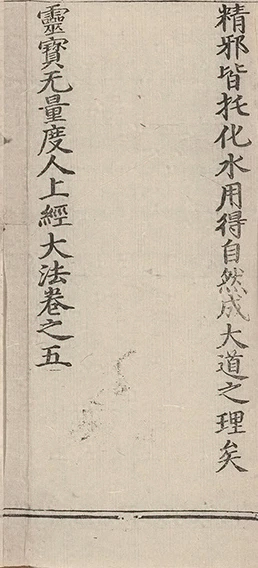 精邪皆托化水用得自然成大道之理矣
靈寳无量度人上經大法卷之五